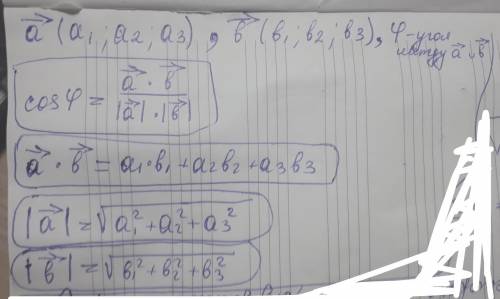 a⃗ (a₁; a₂; a₃), b⃗ (в₁; в₂; в₃), φ-угол между a⃗ и b⃗
cosφ = (a⃗ · b⃗) / (|a⃗| · |b⃗|)
a⃗ · b⃗ = a₁·в₁ + a₂в₂ + a₃в₃
|a⃗| = √(a₁² + a₂² + a₃²)
|b⃗| = √(в₁² + в₂² + в₃²)